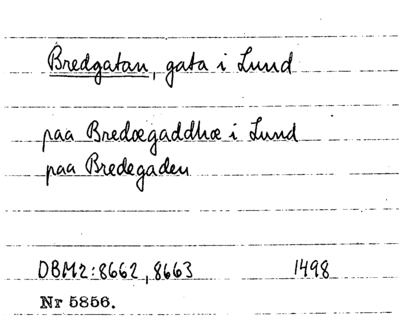 Bredgatan, gata i Lund
paa Bredægaddhæ i Lund
paa Bredegaden
DBM2:8662, 8663 1498
Nr 5856.